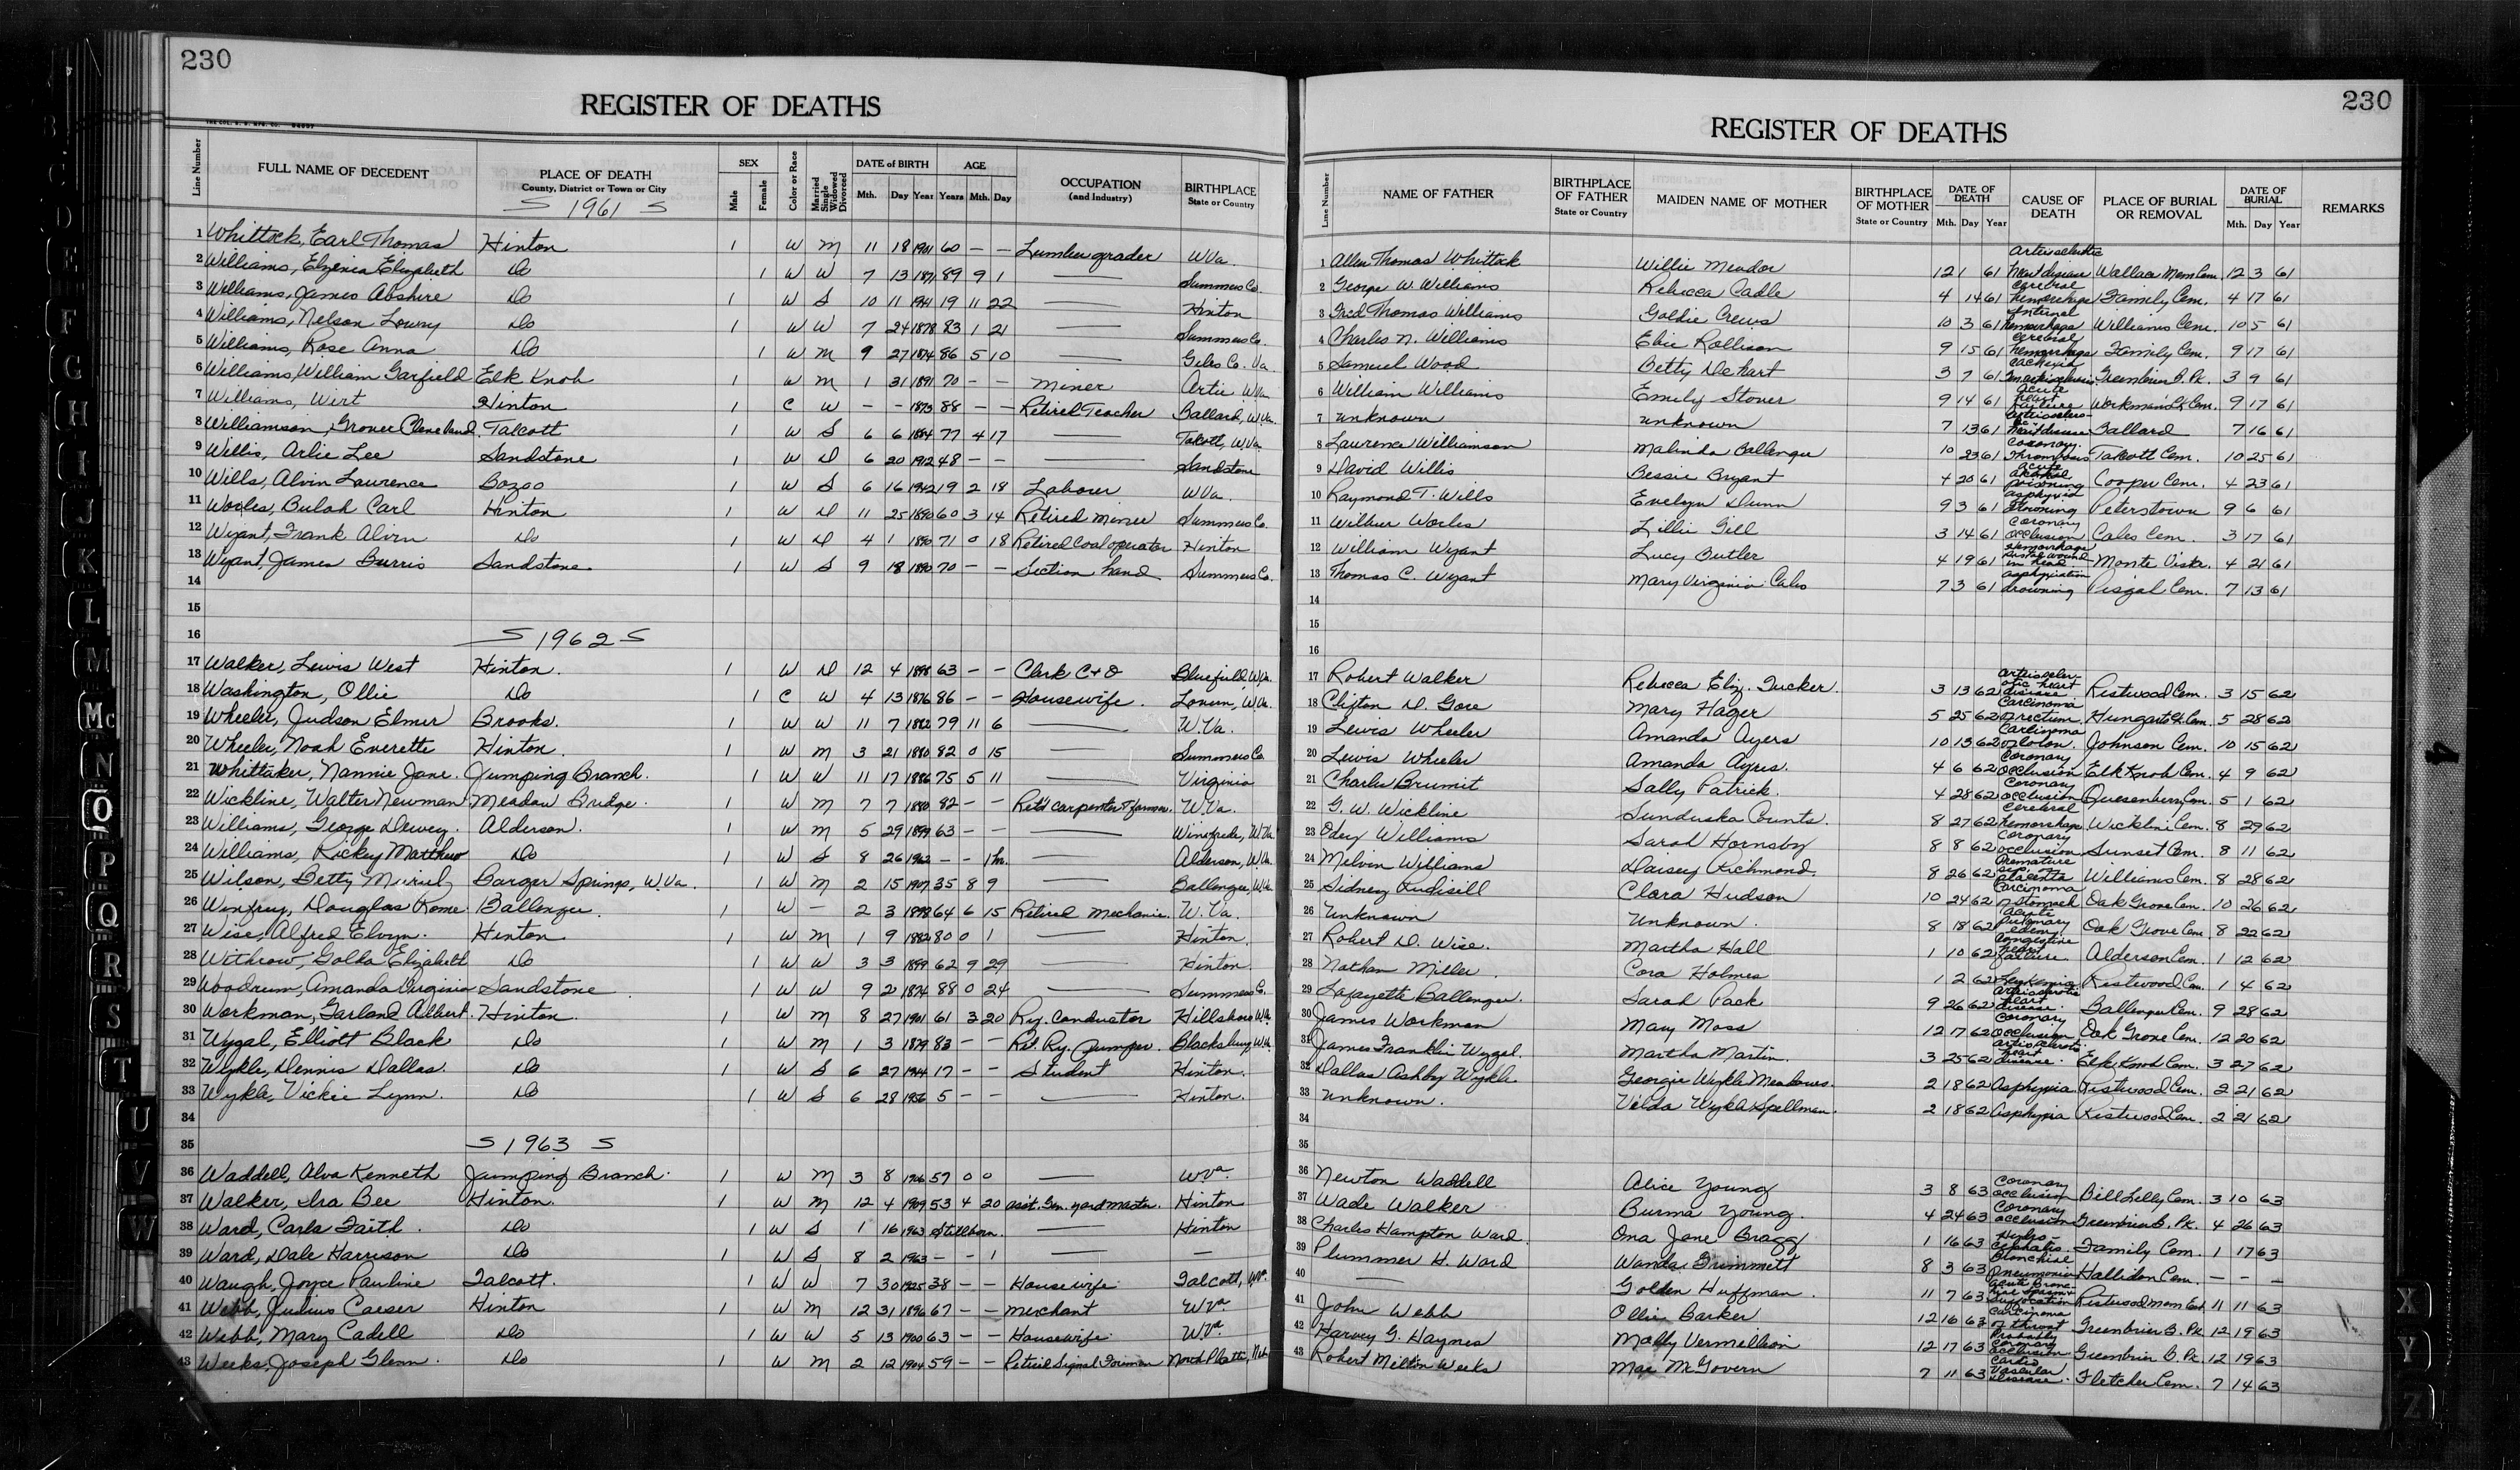 230
REGISTER OF DEATHS
Line Number FULL NAME OF DECEDENT PLACE OF DEATH County, District or Town or City SEX Male Female Color or Race Married Single Widowed Divorced DATE of BIRTH Mth. Day Year AGE Years Mth. Day OCCUPATION (and Industry) BIRTHPLACE State or Country
1961
1 Whittock, Earl Thomas Hinton 1 W M 11 18 1901 60 — — Lumber grader W Va.
2 Williams, Elzenia Elizabeth Do 1 W W 7 13 1871 89 9 1 — Summers Co.
3 Williams, James Abshire Do 1 W S 10 11 1941 19 11 22 — Hinton
4 Williams, Nelson Lowry Do 1 W W 7 24 1878 83 1 21 — Summers Co.
5 Williams, Rose Anna Do 1 W M 9 27 1874 86 5 10 — Giles Co. Va.
6 Williams, William Garfield Elk Knob 1 W M 1 31 1891 70 — — Miner Artie W Va
7 Williams, Wirt Hinton 1 C W — — 1873 88 — — Retired Teacher Ballard, W Va.
8 Williamson, Grover Cleveland Talcott 1 W S 6 6 1884 77 4 17 — Talcott, W Va
9 Willis, Arlie Lee Sandstone 1 W D 6 20 1912 48 — — — Sandstone
10 Wills, Alvin Laurence Bozoo 1 W S 6 16 1942 19 2 18 Laborer W Va.
11 Woolis, Bulah Carl Hinton 1 W D 11 25 1890 60 3 14 Retired Miner Summers Co.
12 Wyant, Frank Alvin Do 1 W D 4 1 1890 71 0 18 Retired Coal operator Hinton
13 Wyant, James Burris Sandstone 1 W S 9 18 1890 70 — — Section hand Summers Co.
14
15
16 1962
17 Walker, Lewis West Hinton. 1 W D 12 4 1898 63 — — Clerk C+O Bluefield, W Va.
18 Washington, Ollie Do 1 C W 4 13 1876 86 — — Housewife. W Va.
19 Wheeler, Judson Elmer Brooks. 1 W W 11 7 1882 79 11 6 — W. Va.
20 Wheeler, Noah Everette Hinton. 1 W M 3 21 1880 82 0 15 — Summers Co
21 Whittaker, Nannie Jane. Jumping Branch. 1 W W 11 17 1886 75 5 11 — Virginia
22 Wickline, Walter Newman Meadow Bridge. 1 W M 7 7 1880 82 — — Ret'd carpenter & farmer. W. Va.
23 Williams, George Dewey. Alderson. 1 W M 5 29 1899 63 — — — Winifrede, W Va
24 Williams, Rickey Matthew Do 1 W S 8 26 1962 — — 1h. — Alderson, W Va.
25 Wilson, Betty Muriel Barger Springs, W Va. 1 W M 2 15 1927 35 8 9 — Ballengee, W Va
26 Winfrey, Douglas Rome. Ballengee. 1 W — 2 3 1898 64 6 15 Retired Mechanic. W. Va.
27 Wise, Alfred Elvyn. Hinton 1 W M 1 9 1882 80 0 1 — Hinton.
28 Withrow, Golka Elizabeth Do 1 W W 3 3 1899 62 9 29 — Hinton.
29 Woodrum, Amanda Virginia Sandstone 1 W W 9 2 1874 88 0 24 — Summers C.
30 Workman, Garland Albert. Hinton. 1 W M 8 27 1901 61 3 20 Ry. Conductor Hillsboro W Va.
31 Wygal, Elliott Black Do 1 W M 1 3 1879 83 — — Ret. Ry. Pumper. Blacksburg W Va.
32 Wykle, Dennis Dallas. Do 1 W S 6 27 1944 17 — — Student Hinton.
33 Wykle, Vickie Lynn. Do 1 W S 6 28 1956 5 — — — Hinton.
34
35 1963
36 Waddell, Alva Kenneth Jumping Branch. 1 W M 3 8 1906 57 0 0 — W Va.
37 Walker, Ira Bee Hinton. 1 W M 12 4 1909 53 4 20 asst. Gen. yard master. Hinton
38 Ward, Carla Faith. Do 1 W S 1 16 1963 Stillborn. — Hinton
39 Ward, Dale Harrison Do 1 W S 8 2 1963 — — 1 — —
40 Waugh, Joyce Pauline Talcott. 1 W W 7 30 1925 38 — — Housewife Talcott, W Va.
41 Webb, Julius Caeser Hinton 1 W M 12 31 1896 67 — — Merchant W Va
42 Webb, Mary Cadell Do 1 W W 5 13 1900 63 — — Housewife. W. Va.
43 Weeks, Joseph Glenn. Do 1 W M 2 12 1904 59 — — Retired Signal Foreman North Platte, Neb.
230
REGISTER OF DEATHS
Line Number NAME OF FATHER BIRTHPLACE OF FATHER State or Country MAIDEN NAME OF MOTHER BIRTHPLACE OF MOTHER State or Country DATE OF DEATH Mth. Day Year CAUSE OF DEATH PLACE OF BURIAL OR REMOVAL DATE OF BURIAL Mth. Day Year REMARKS
1 Allen Thomas Whittock Willie Meador 12 1 61 Arteriosclerotic heart disease Wallace Mem Cem. 12 3 61
2 George W. Williams Rebecca Cadle 4 14 61 Cerebral hemorrhage Family Cem. 4 17 61
3 Fred Thomas Williams Goldie Crews 10 3 61 Internal hemorrhage Williams Cem. 10 5 61
4 Charles N. Williams Elzie Rollison 9 15 61 Cerebral hemorrhage Family Cem. 9 17 61
5 Samuel Wood Betty Dehart 3 7 61 Cachexia Greenbrier B. Pk. 3 9 61
6 William Williams Emily Stover 9 14 61 Acute heart failure Workman's Ck Cem. 9 17 61
7 Unknown Unknown 7 13 61 Arteriosclerotic heart disease Ballard 7 16 61
8 Laurence Williamson Malinda Ballengee 10 23 61 Coronary thrombosis Talcott Cem. 10 25 61
9 David Willis Bessie Bryant 4 20 61 Acute alcohol poisoning Cooper Cem. 4 23 61
10 Raymond T. Wills Evelyn Dunn 9 3 61 Asphyxia drowning Peterstown 9 6 61
11 Wilbur Woolis Lillie Gill 3 14 61 Coronary occlusion Cales Cem. 3 17 61
12 William Wyant Lucy Butler 4 19 61 Hemorrhage Pistol wound in head. Monte Vista. 4 21 61
13 Thomas C. Wyant Mary Virginia Cales 7 3 61 Asphyxiation drowning Pisgah Cem. 7 13 61
14
15
16
17 Robert Walker Rebecca Eliz. Tucker. 3 13 62 Arteriosclerotic heart disease Restwood Cem. 3 15 62
18 Clifton D. Gore Mary Hager 5 25 62 Carcinoma of rectum. Cem. 5 28 62
19 Lewis Wheeler Amanda Ayers 10 13 62 Carcinoma of Colon. Johnson Cem. 10 15 62
20 Lewis Wheeler Amanda Ayres. 4 6 62 Coronary occlusion Elk Knob Cem. 4 9 62
21 Charles Brumit Sally Patrick. 4 28 62 Coronary occlusion Quesenberry Cem. 5 1 62
22 G. W. Wickline Sunduska Counts. 8 27 62 Cerebral hemorrhage Wickline Cem. 8 29 62
23 Odey Williams Sarah Hornsby 8 8 62 Coronary occlusion Sunset Cem. 8 11 62
24 Melvin Williams Daisey Richmond. 8 26 62 Premature placenta Williams Cem. 8 28 62
25 Sidney Rudisill Clara Hudson 10 24 62 Carcinoma of stomach Oak Grove Cem. 10 26 62
26 Unknown Unknown. 8 18 62 Acute Pulmonary edema Oak Grove Cem. 8 22 62
27 Robert D. Wise. Martha Hall 1 10 62 Congestive heart failure Alderson Cem. 1 12 62
28 Nathan Miller. Cora Holmes 1 2 62 Leukemia Restwood Cem. 1 4 62
29 Lafayette Ballengee. Sarah Pack 9 26 62 Arteriosclerotic heart disease. Ballengee Cem. 9 28 62
30 James Workman May Moss 12 17 62 Coronary occlusion Oak Grove Cem. 12 20 62
31 James Franklin Wygal. Martha Martin. 3 25 62 Arteriosclerotic heart disease. Elk Knob Cem. 3 27 62
32 Dallas Ashby Wykle Georgie Wykle Meadows. 2 18 62 Asphyxia Restwood Cem. 2 21 62
33 Unknown. Velda Wykle Spellman. 2 18 62 Asphyxia Restwood Cem. 2 21 62
34
35
36 Newton Waddell Alice Young 3 8 63 Coronary occlusion Bill Lilly Cem. 3 10 63
37 Wade Walker Burma Young. 4 24 63 Coronary occlusion Greenbrier B. Pk. 4 26 63
38 Charles Hampton Ward. Ona Jane Bragg 1 16 63 Hydrocephalis. Family Cem. 1 17 63
39 Plummer H. Ward Wanda Grimmett 8 3 63 Bronchial pneumonia Cem. — — —
40 — Golden Huffman. 11 7 63 Acute Bronchial spasm & suffocation Restwood Mem 11 11 63
41 John Webb Ollie Barker 12 16 63 Carcinoma of throat Greenbrier B. Pk. 12 19 63
42 Harvey G. Haynes Molly Vermellion 12 17 63 Probably coronary occlusion Greenbrier B. Pk. 12 19 63
43 Robert Milton Weeks Mae McGovern 7 11 63 Cardio Vascular disease. Fletcher Cem. 7 14 63
D
E
F
G
H
I
J
K
L
M
Mc
N
O
P
Q
R
S
T
U
V
W
X
Y
Z